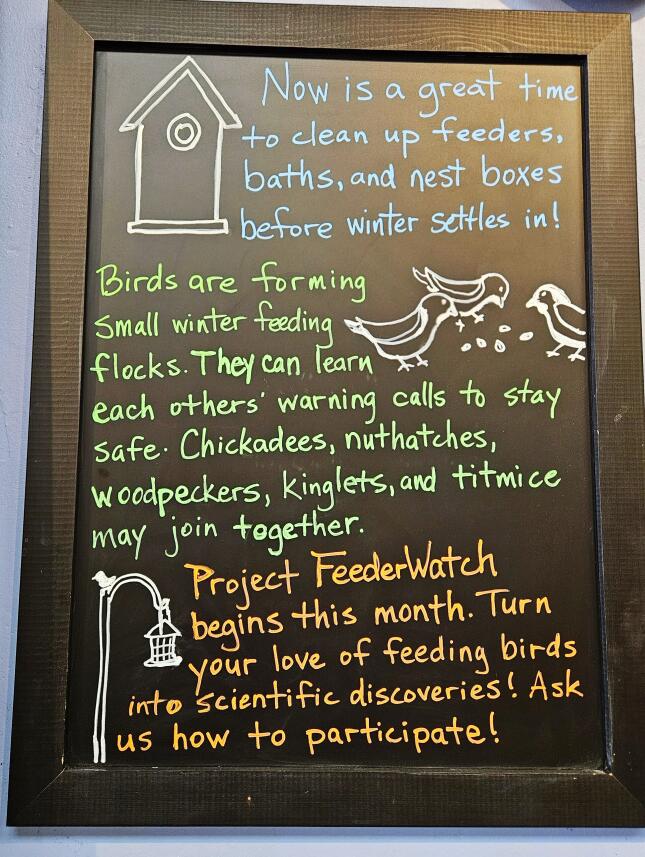 Now is a great time
to clean up feeders,
baths, and nest boxes
before winter settles in!
Birds are forming
small winter feeding
flocks. They can learn
each others' warning calls to stay
safe. Chickadees, nuthatches,
woodpeckers, kinglets, and titmice
may join together.
Project FeederWatch
begins this month. Turn
your love of feeding birds
into scientific discoveries! Ask
us how to participate!